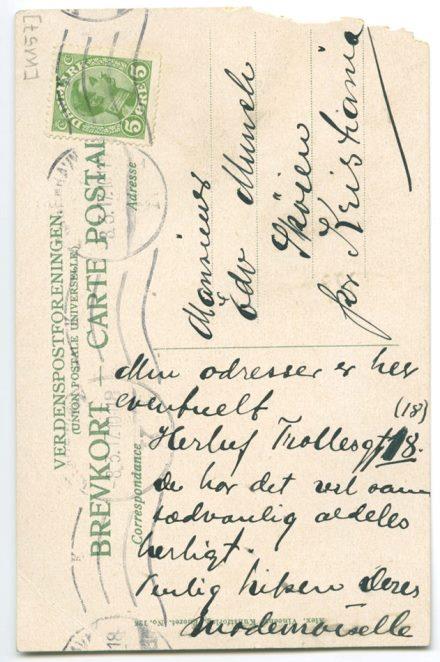 [K1157]
DANMARK
5 ØRE 5
VERDENSPOSTFORENINGEN.
(UNION POSTALE UNIVERSELLE.)
BREVKORT – CARTE POSTALE
Correspondance
Adresse
8.5.17.
Monsieur
Edv Munch
Skøien
for Kristiania
Min adresser er her
eventuelt (18)
Herluf Trollesgt 18.
De har det vel som
sædvanlig aldeles
herligt.
Venlig hilsen Deres
Mademoiselle
Alex. Vincents Kunstforlag, No. 128